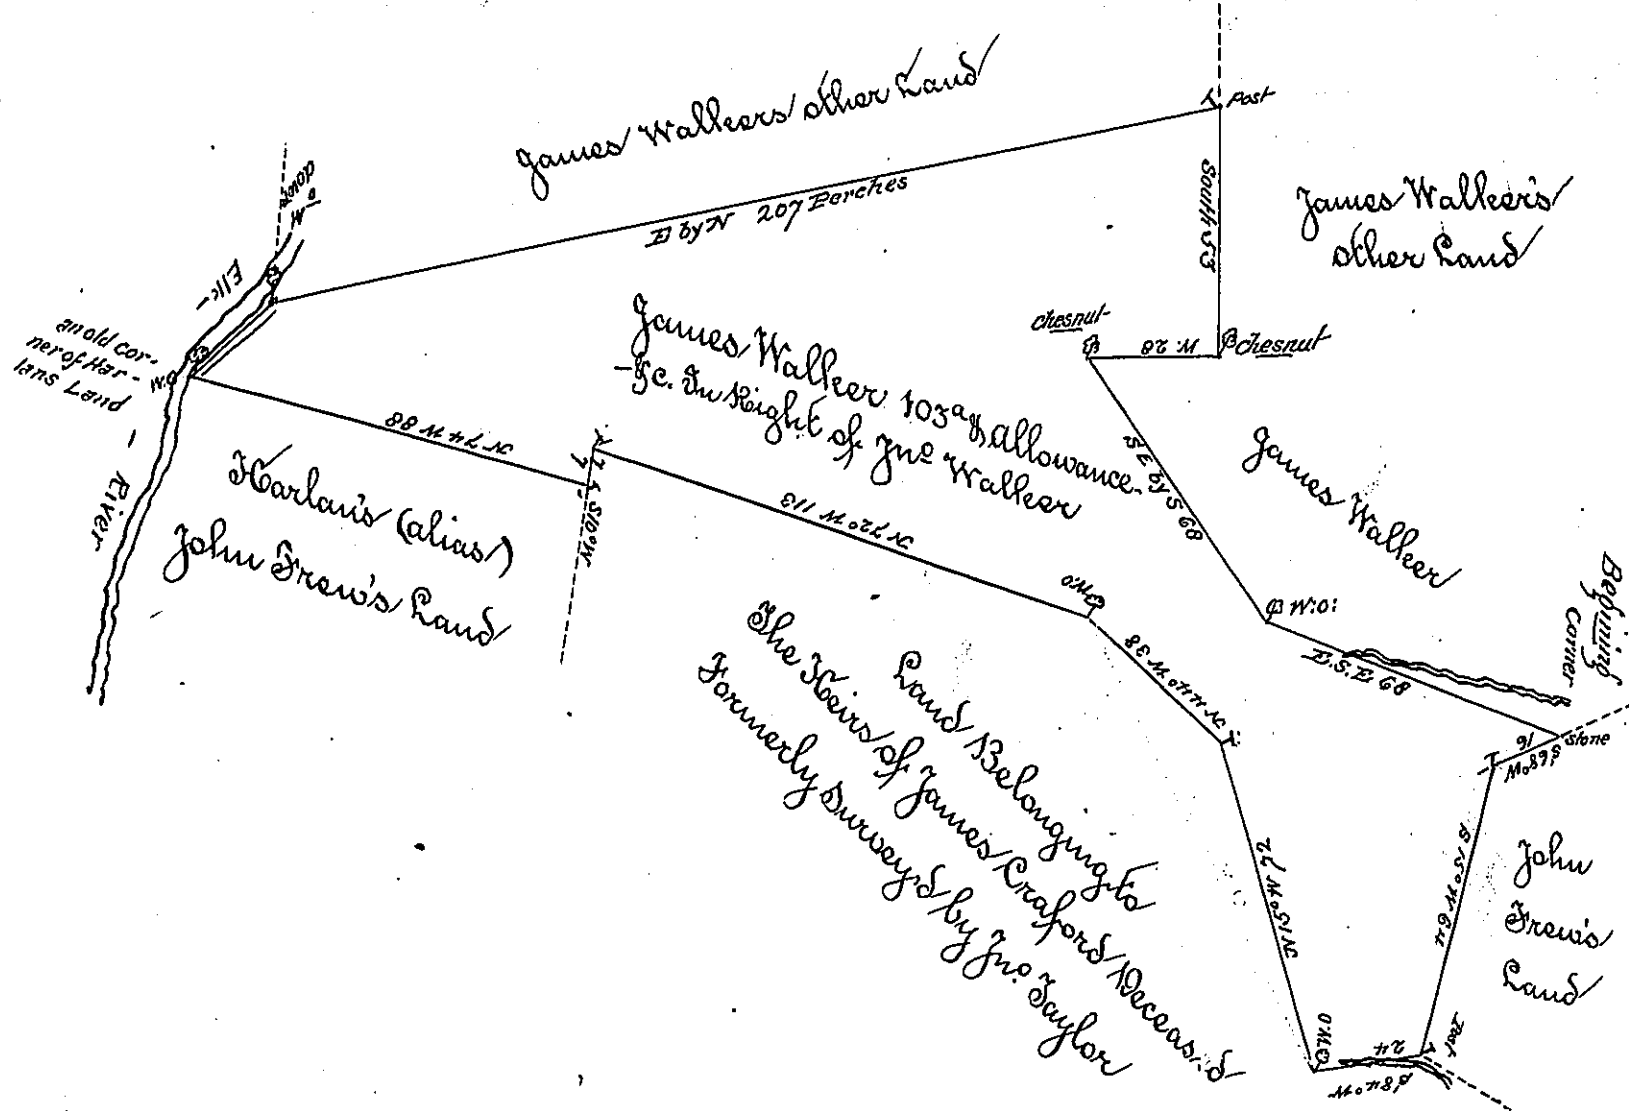 James Walkers other Land
Post
E by N 207 Perches
South 53
James Walker's
other Land
W.O
Elk
an old cor-
ner of Har-
lans Land
W.O
River
Chesnut
W. 28
Chesnut
James Walker 103a & Allowance
-&c. In Right of Jno Walker
S E by S 68
James Walker
N 74 W 88
Harlan's (alias)
John Frew's Land
7
S10°W
N 72° W 113
W.O
W.O:
E.S.E 68
Begining
Corner
Stone
16
S 68°W
N 44° W 38
Land Belonging to
The Heirs of James Craford Deceas.d
Formerly Survey.d by Jno. Taylor
N 15° W 72
S 15° W 64
John
Frew's
Land
W.O
24
S 84° W
Post